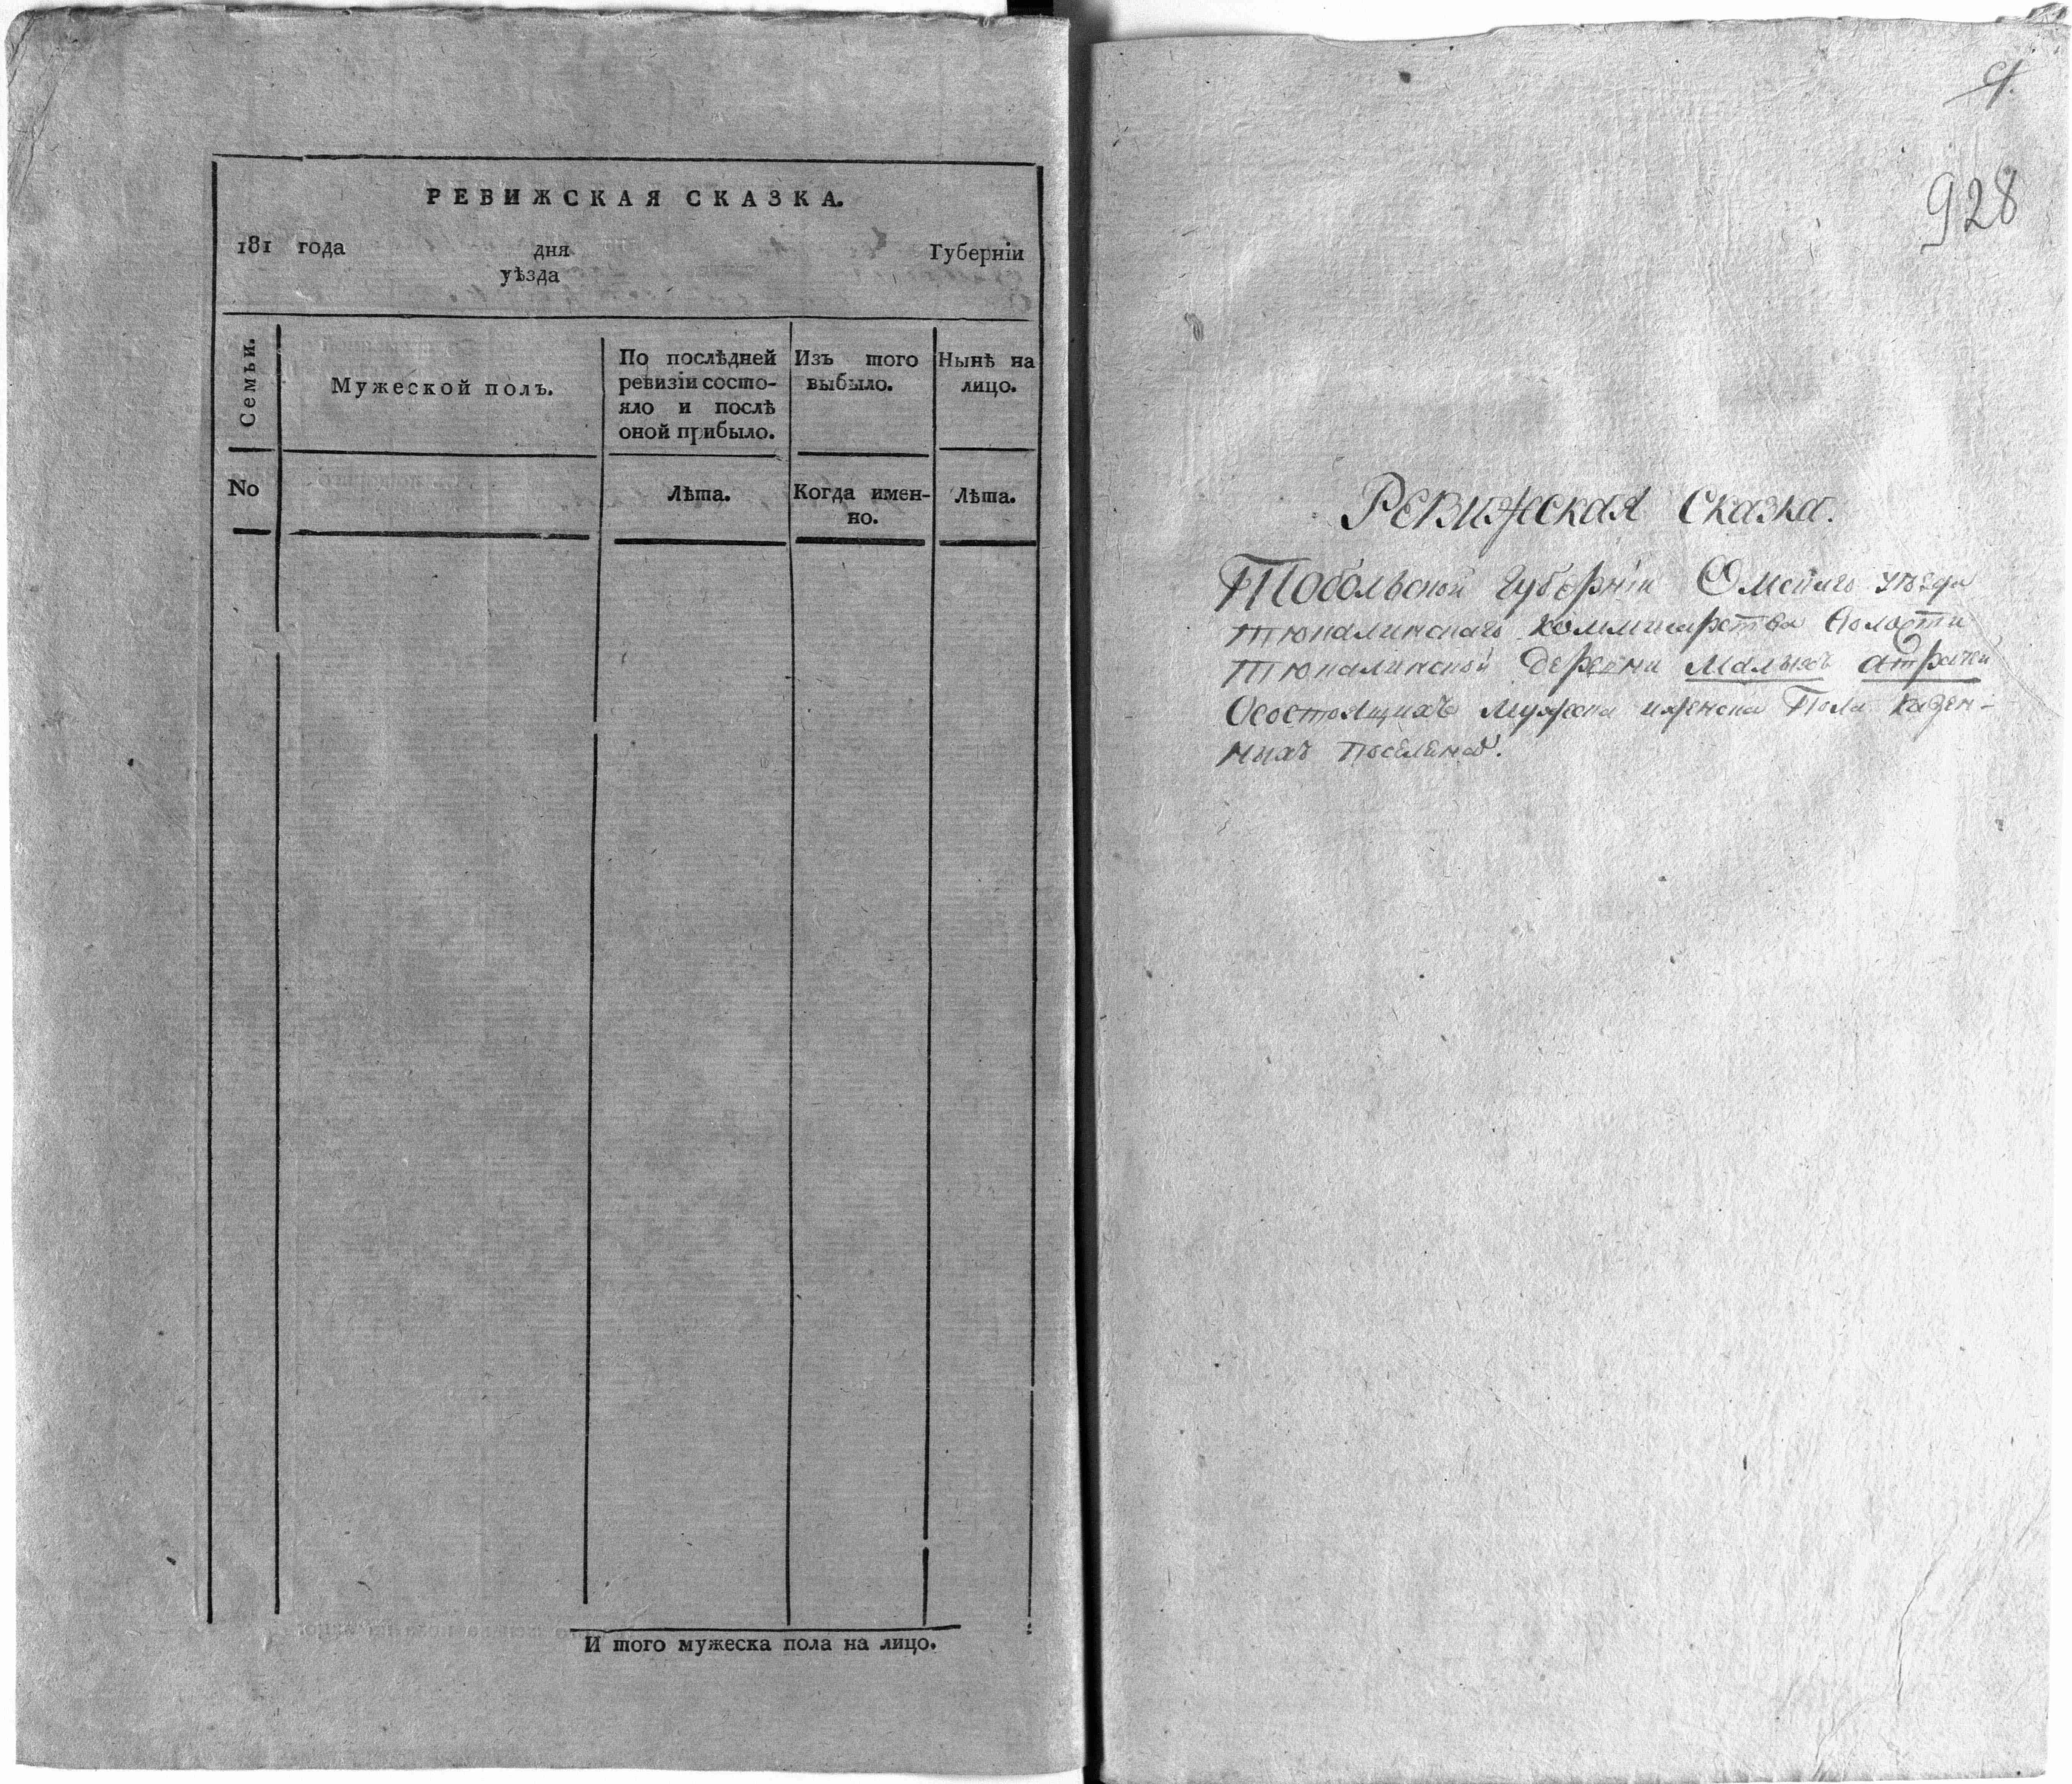 РЕВИЖСКАЯ СКАЗКА.
181 года дня Губернїи
уѣзда
Семьи.
Мужеской полъ.
По послѣдней
ревизїи состо-
яло и послѣ
оной прибыло.
Изъ того
выбыло.
Нынѣ на
лицо.
No
Лѣта.
Когда имен-
но.
Лѣта.
И того мужеска пола на лицо.
928
Ревижская Сказка.
Тобольской Губернїи Омскаго уѣзда
Тюкалинскаго Коммисарства Волости
Тюкалинской деревни Малыхъ Атрачки
Осостоящихъ мужеска иженска Пола казен-
ныхъ поселенцовъ.